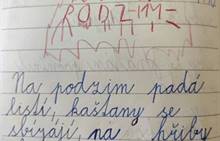 PODZIM
Na podzim padá
listí, kaštany se
sbírají, na hřiby